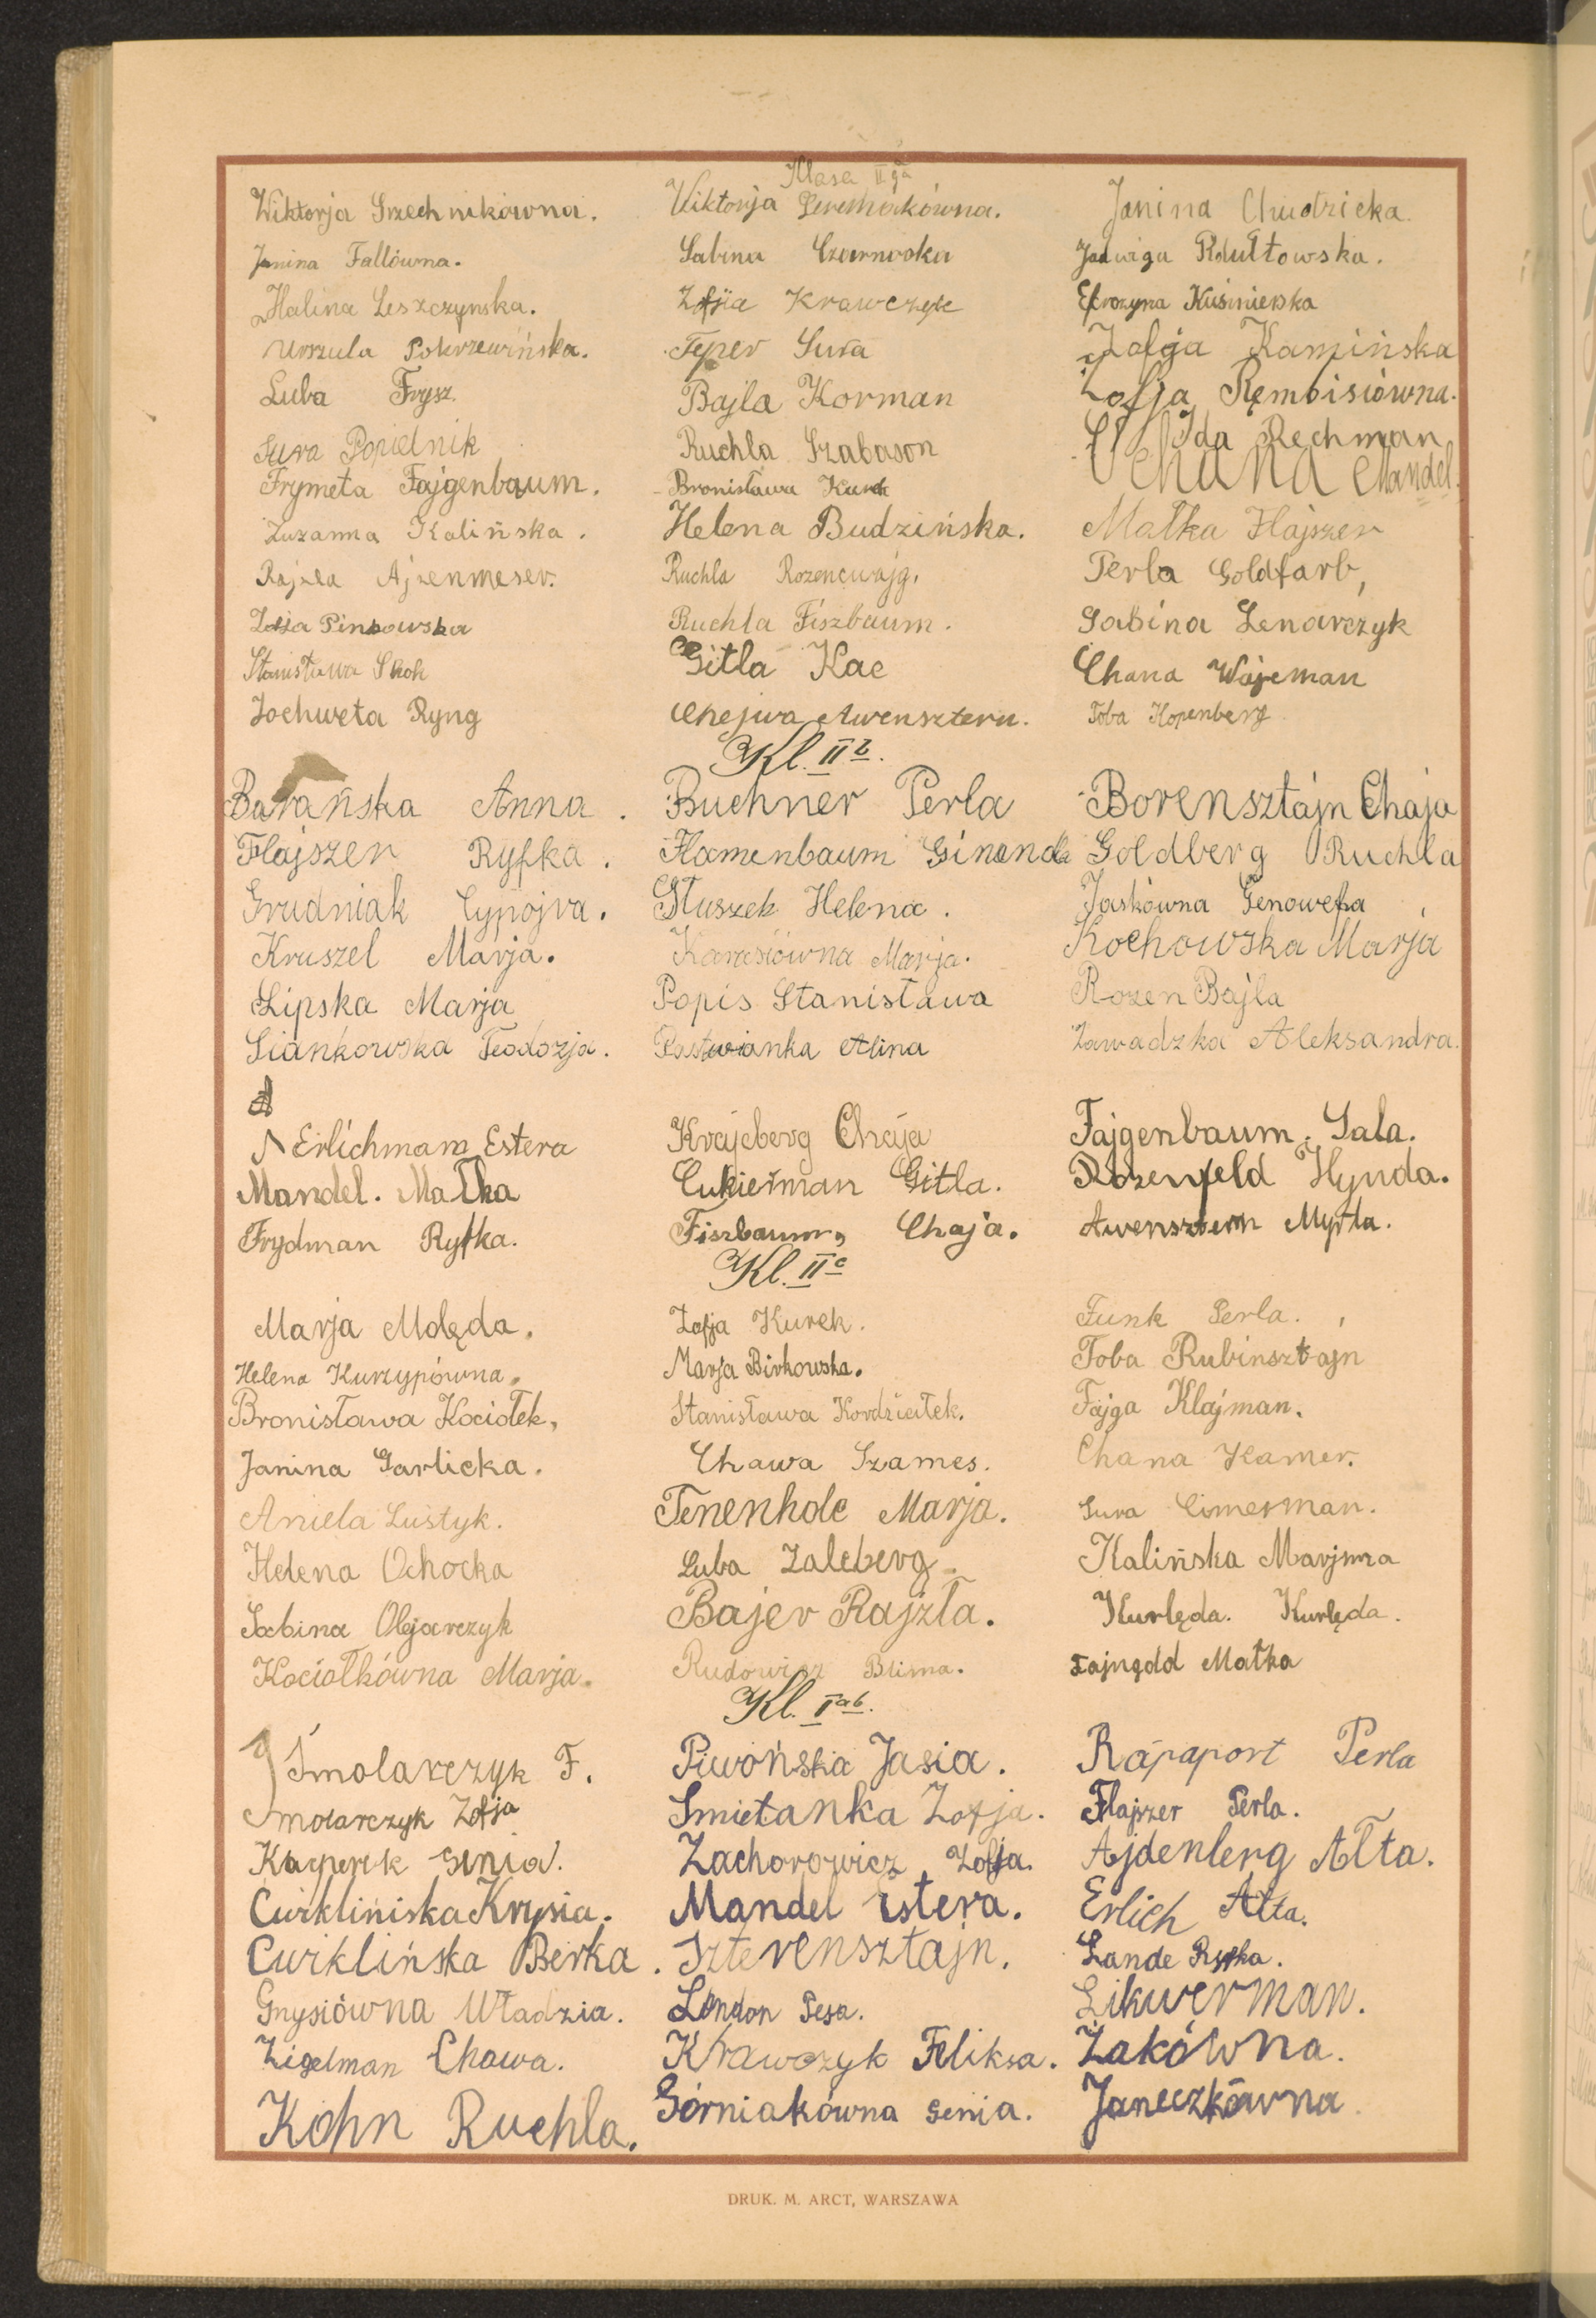 Klasa II ga
Wiktorja Grzechnikówna. Wiktorja Janina
Janina Fallówna. Sabina Czarnocka Jadwiga Rdułtowska.
Halina Leszczynska. Zofja Krawczyk Efrozyna Kuśmierska
Urszula Pokrzewińska. Teper Sura Zofja Kamińska
Luba Frysz. Bajla Korman Zofja Rembisiówna.
Sura Popielnik Ruchla Szabason Ida Rechman
Frymeta Fajgenbaum. Bronisława Kurek Chana Mandel.
Zuzanna Kalińska. Helena Budzińska. Małka Flajszer
Rajzla Ajzenmeser. Ruchla Rozencwajg. Perla Goldfarb,
Zofja Pinkowska Ruchla Fiszbaum. Sabina Lenarczyk
Stanisława Skok Gitla Kac Chana Wajcman
Jochweta Ryng Chejwa Awensztern. Toba Kopenberg
Kl. II b.
Barańska Anna. Buchner Perla Borensztajn Chaja
Flajszer Ryfka. Flamenbaum Ginenda Goldberg Ruchla
Grudniak Cypojra. Głuszek Helena. Jaskówna Genowefa
Kruszel Marja. Karasiówna Marja. Kochowska Marja
Lipska Marja Popis Stanisława Rozen Bajla
Siankowska Teodozja. Pastwianka Alina Zawadzka Aleksandra.
Erlichman Estera Krajcberg Chaja Fajgenbaum. Sala.
Mandel. Małka Cukierman Gitla. Rozenfeld Hynda.
Frydman Ryfka. Fiszbaum, Chaja. Awensztern Myrla.
Kl. II c
Marja Molęda. Zofja Kurek. Funk Perla.
Helena Kurzypówna. Marja Birkowska. Toba Rubinsztajn
Bronisława Kociołek, Stanisława Kordziałek. Fajga Klajman.
Janina Garlicka. Chawa Szames. Chana Kamer.
Aniela Lustyk. Tenenholc Marja. Sura Cimerman.
Helena Ochocka Luba Zalcberg. Kalińska Marjmra
Sabina Olejarczyk Bajer Rajzla. Kurlęda. Kurlęda.
Kociołkówna Marja. Rudowicz Blima. Małka
Kl. I ab.
Smolarczyk F. Piwońska Jasia. Rapaport Perla
Smolarczyk Zofja Smietanka Zofja. Flajszer Perla.
Kacperek Genia. Zachorowicz Zofja. Ajdenberg Ałta.
Cwikliniska Krysia. Mandel Estera. Erlich Ałta.
Cwiklińska Berka. Szterensztajn. Lande Ryfka.
Gnysiówna Władzia. London Pesa. Likwerman.
Zigelman Chawa. Krawczyk Feliksa. Żakówna.
Kohn Ruchla. Górniakówna Genia. Janeczkówna
DRUK. M. ARCT, WARSZAWA